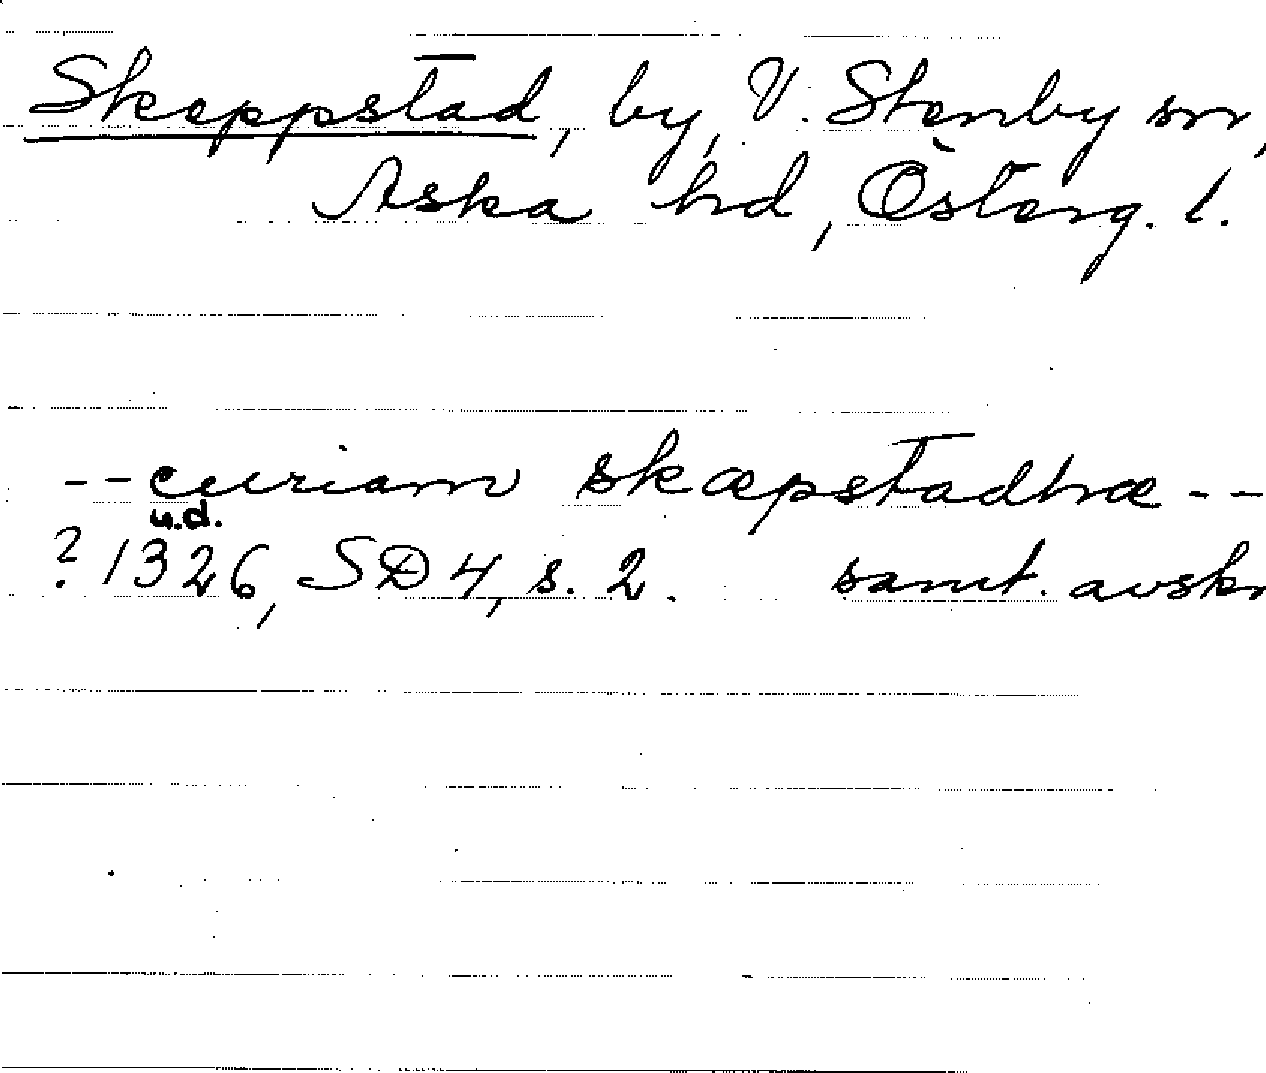 Skeppstad, by, V. Stenby sn,
Aska hd, Österg. l.
--curiam skæpstadhæ--
u.d.
? 1326, SD 4, s. 2. samt. avskr